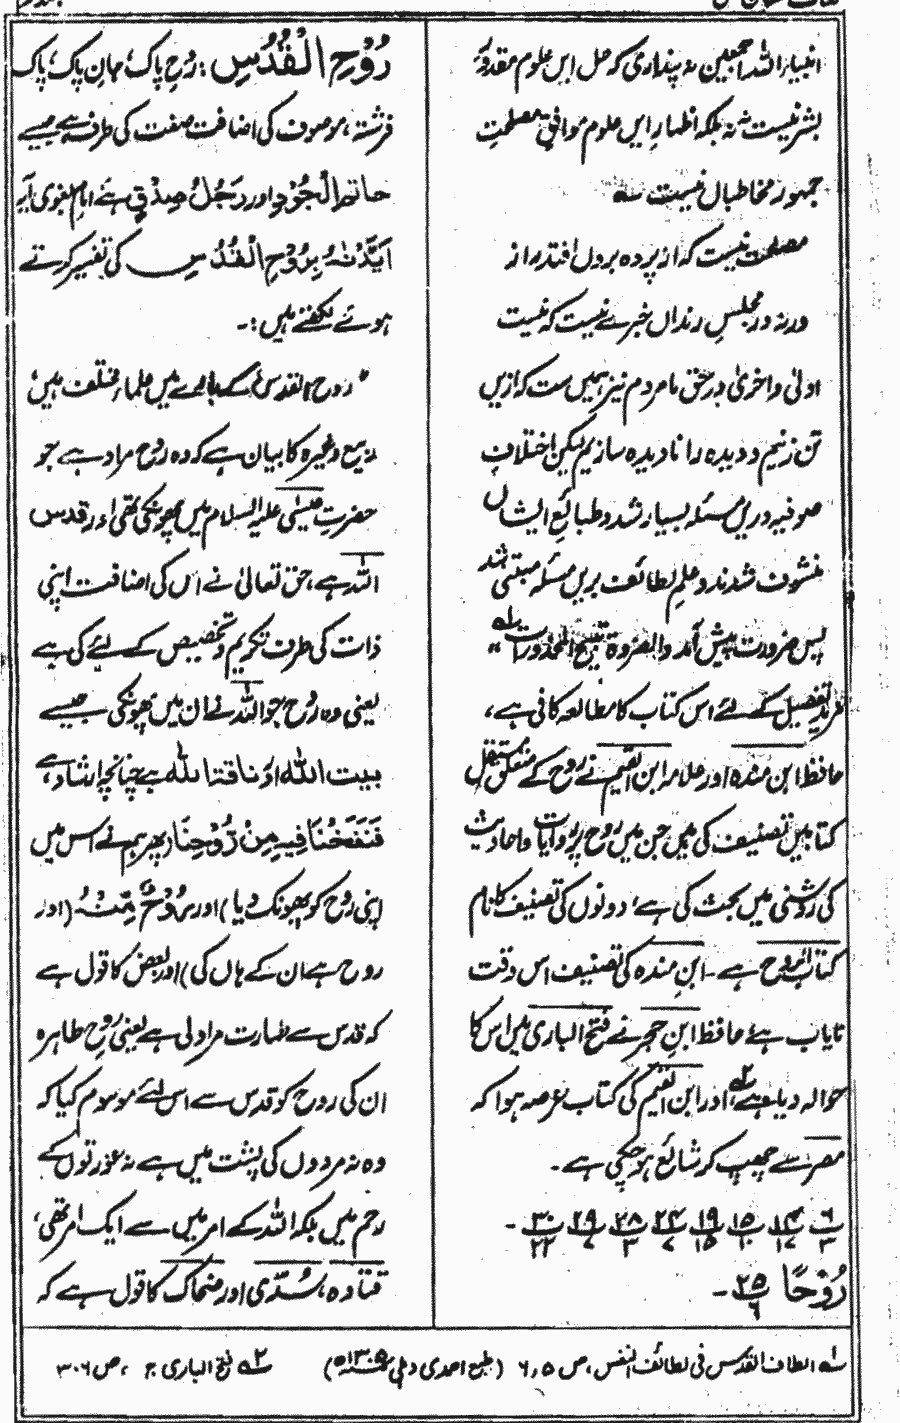 انبیاء اللہ اجمعین نہ پنداری کہ حل ایں علوم مقدور
بشر نیست نہ نہ بلکہ اظہار ایں علوم موافق مصلحت
جمہور مخاطبان نیست ؎
مصلحت نیست کہ از پردہ بروں افتد راز
ورنہ در مجلس رنداں خبرے نیست کہ نیست
اولیٰ و احریٰ در حق ما مردم نیز ہمیں ست کہ ازیں
تن زنیم و دیدہ را نادیدہ سازیم لیکن اختلاف
صوفیہ دریں مسئلہ بسیار شد و طبائع ایشاں
مشوف شدند و علم لطائف بریں مسئلہ مبتنی شد
پس ضرورت پیش آمد والضرورۃ تبیح المحذورات لہ"
مزید تفصیل کے لئے اس کتاب کا مطالعہ کافی ہے،
حافظ ابن مندہ اور علامہ ابن القیم نے روح کے متعلق مستقل
کتابیں تصنیف کی ہیں جن میں روح پر روایات و احادیث
کی روشنی میں بحث کی ہے، دونوں کی تصنیف کا نام
کتاب الروح ہے۔ ابن مندہ کی تصنیف اس وقت
نایاب ہے حافظ ابن حجر نے فتح الباری میں اس کا
حوالہ دیا ہے ۲؎ اور ابن القیم کی کتاب عرصہ ہوا کہ
مصر سے چھپ کر شائع ہو چکی ہے۔
۶/۳ ۱۴/۱۷ ۱۵/۱۰ ۱۹/۱۵ ۲۴/۷ ۲۸/۳ ۲۹/۷ ۳۰/۲۲ ۔
رُوْحًا ۲۵/۶ ۔
رُوْحِ الْقُدُسِ: رُوح پاک، جان پاک، پاک
فرشتہ، موصوف کی اضافت صفت کی طرف ہے جیسے
حاتم الْجُوْدِ اور رَجُلُ صِدْقٍ ہے، امام بغوی آیہ
اَیَّدْنٰہُ بِرُوْحِ الْقُدُسِ کی تفسیر کرتے
ہوئے لکھتے ہیں:۔
"روح القدس کے بارے میں علماء مختلف ہیں،
ربیع وغیرہ کا بیان ہے کہ وہ روح مراد ہے جو
حضرت عیسٰی علیہ السلام میں پھونکی گئی تھی اور قدس
اللہ ہے، حق تعالیٰ نے اس کی اضافت اپنی
ذات کی طرف تکریم و تخصیص کے لئے کی ہے
یعنی وہ روح جو اللہ نے ان میں پھونکی جیسے
بیت اللہ اور ناقۃ اللہ ہے چنانچہ ارشاد ہے،
فَنَفَخْنَا فِیْہِ مِنْ رُّوْحِنَا (پھر ہم نے اس میں
اپنی روح کو پھونک دیا) اور رُوْحٌ مِّنْہُ (اور
روح ہے ان کے ہاں کی) اور بعض کا قول ہے
کہ قدس سے طہارت مراد لی ہے یعنی روح طاہرہ
ان کی روح کو قدس سے اس لئے موسوم کیا کہ
وہ نہ مردوں کی پشت میں ہے نہ عورتوں کے
رحم میں بلکہ اللہ کے امر میں سے ایک امر تھی،
قتادہ، سُدّی اور ضحاک کا قول ہے کہ
۱؎ الطاف القدس فی لطائف النفس، ص ۵، ۶ (طبع احمدی دہلی ۱۳۰۵ھ) ۲؎ فتح الباری ج ، ص ۳۰۶